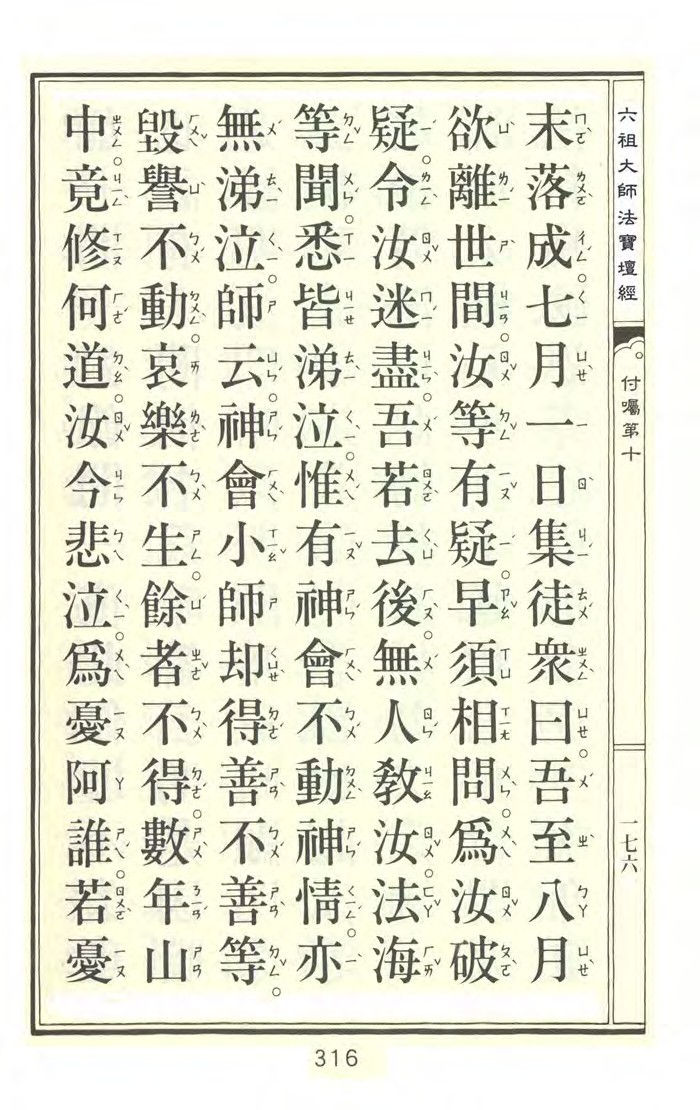 六祖大師法寶壇經
付囑第十
一七六
末落成。七月一日集徒衆曰。吾至八月
欲離世間。汝等有疑。早須相問。爲汝破
疑。令汝迷盡。吾若去後。無人教汝。法海
等聞。悉皆涕泣。惟有神會。不動神情。亦
無涕泣。師云。神會小師。却得善不善等。
毀譽不動。哀樂不生。餘者不得。數年山
中。竟修何道。汝今悲泣。爲憂阿誰。若憂
316